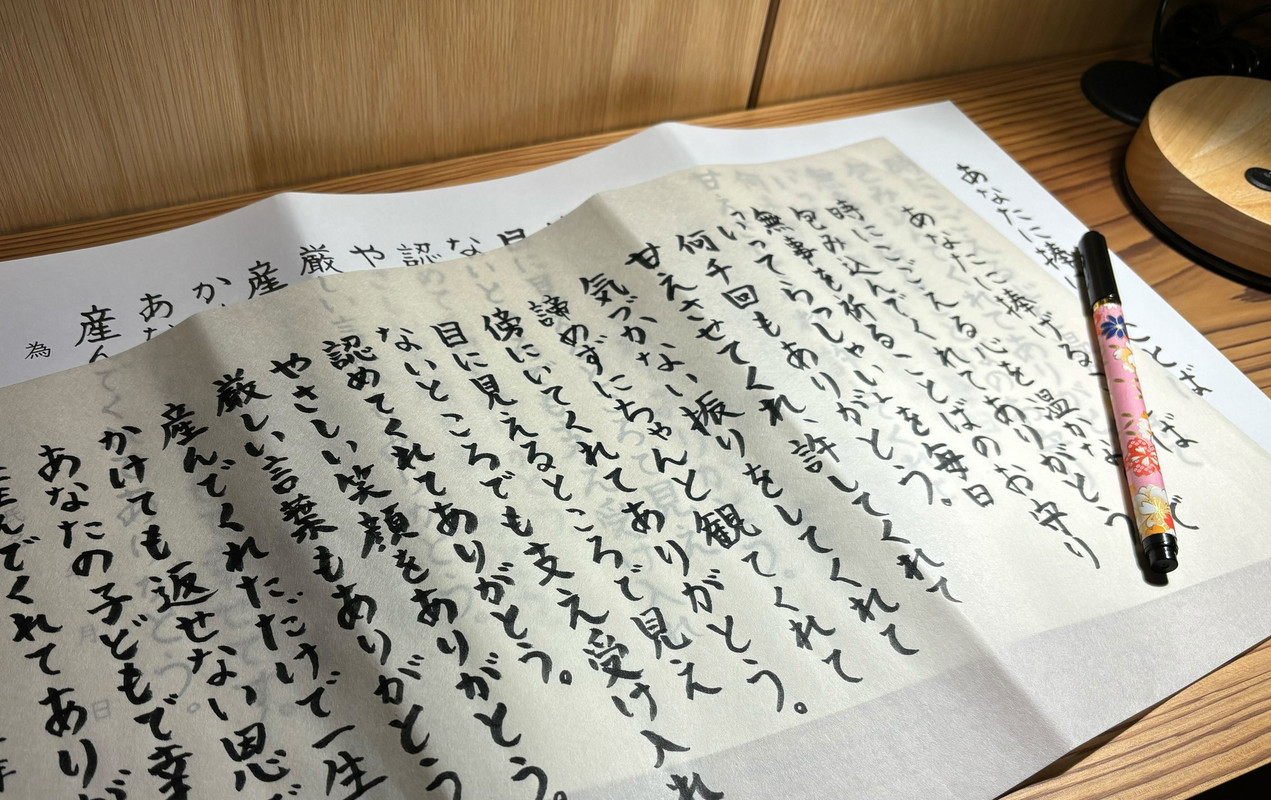 あなたに捧
ことば
あなたに捧げる
ば
時にこごえる心を温か
包み込んでくれてありがとう
無事を祈ることばのお守り
いってらっしゃいを毎日
何千回もありがとう。
甘えさせてくれ、許してくれて
気づかない振りをしてくれて
諦めずにちゃんと観てくれて
傍にいてくれてありがとう。
目に見えるところで見え
ないところでも支え受け入れ
認めてくれてありがとう。
やさしい笑顔をありがとう。
厳しい言葉もありがとう
産んでくれただけで一生
かけても返せない恩で
あなたの子どもで幸
産んでくれてありが
目
な
認
や
厳
産
か
あな
産ん
為